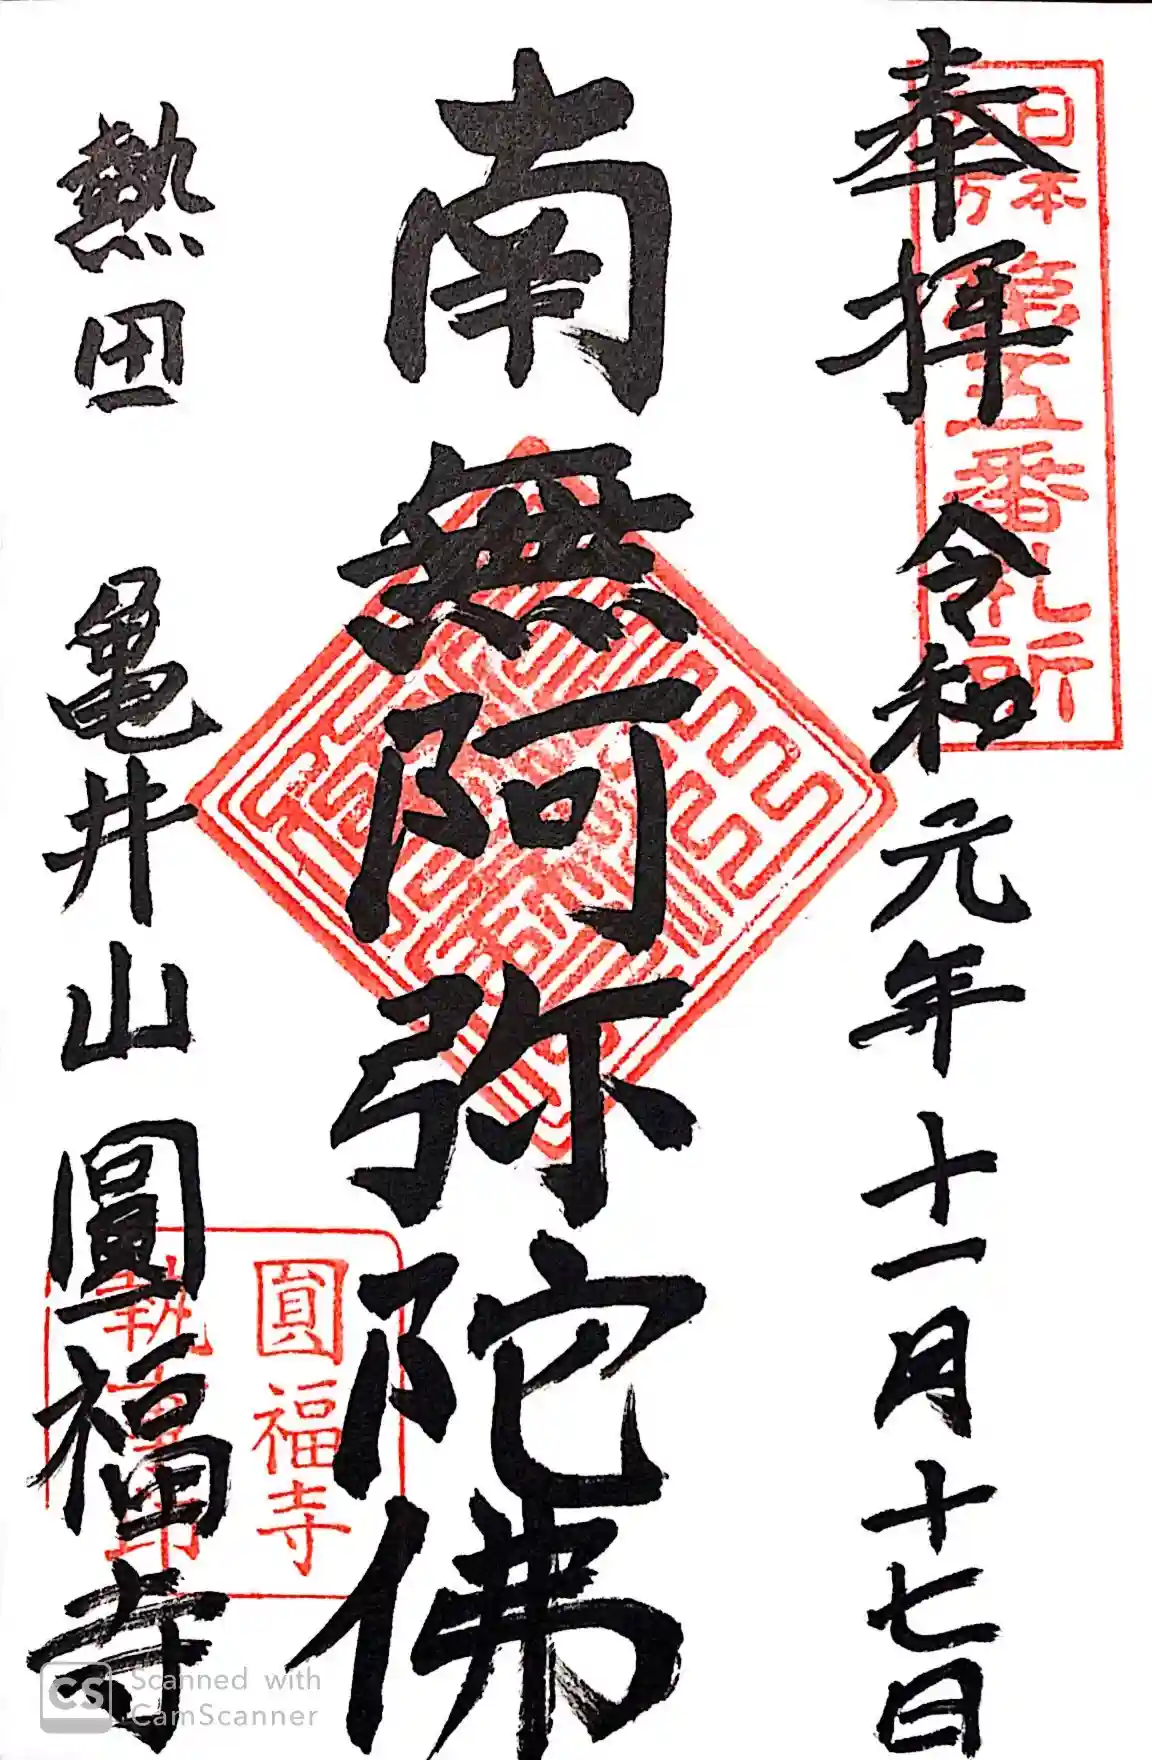 奉拝 令和元年十一月十七日
日本
第五番札所
南無阿弥陀佛
熱田 亀井山 圓福寺
圓福寺
Scanned with
CamScanner